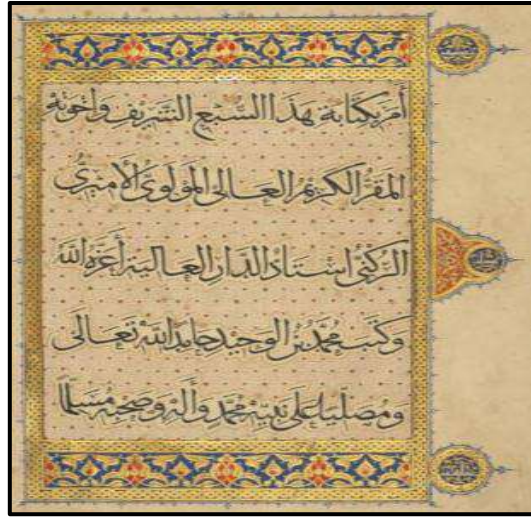 أمر بكتابة هذا السبع الشريف وأخوته
المقر الكريم العالى المولوى الأميرى
الركنى استاذ الدار العالية أعزه الله
وكتبه محمد بن الوحيد حامدا لله تعالى
ومصليا على نبيه محمد وأله وصحبه مسلما